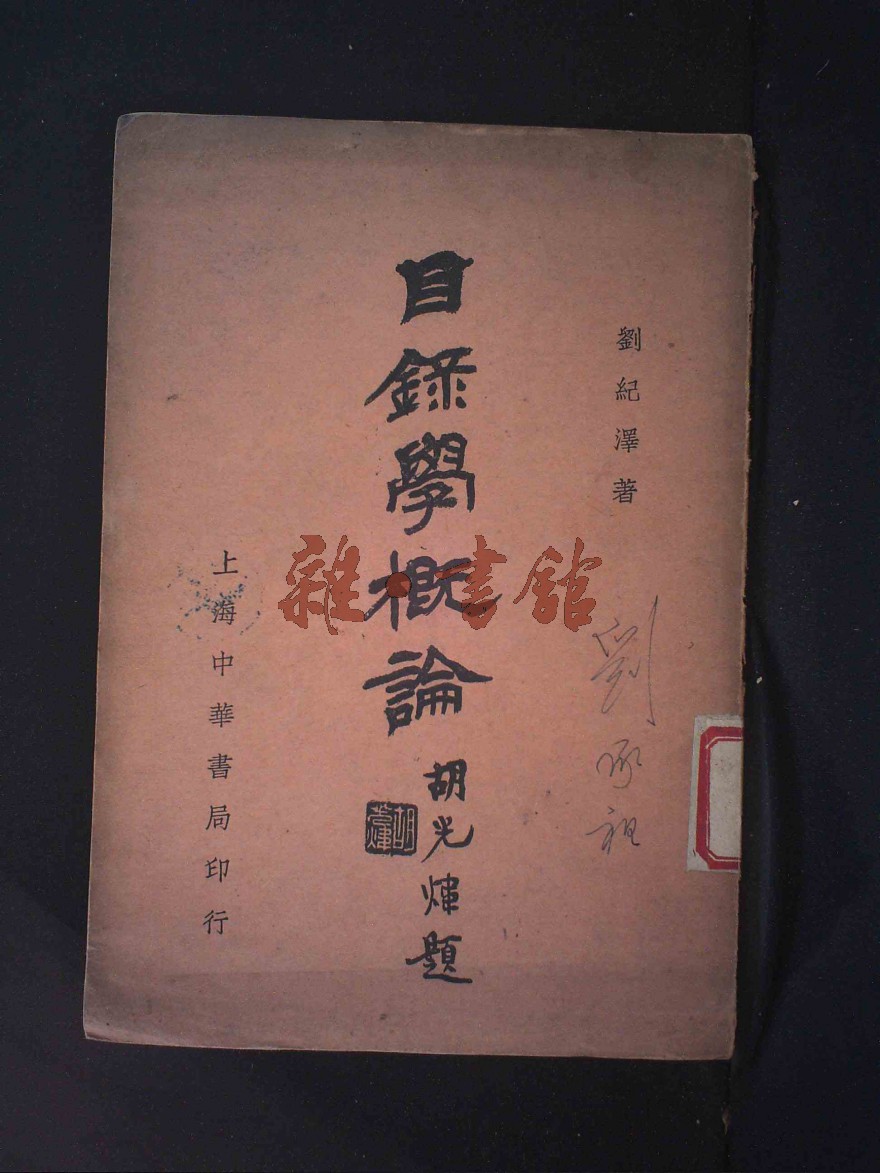 劉紀澤著
目錄學概論
胡光煒題
上海中華書局印行
雜·書館